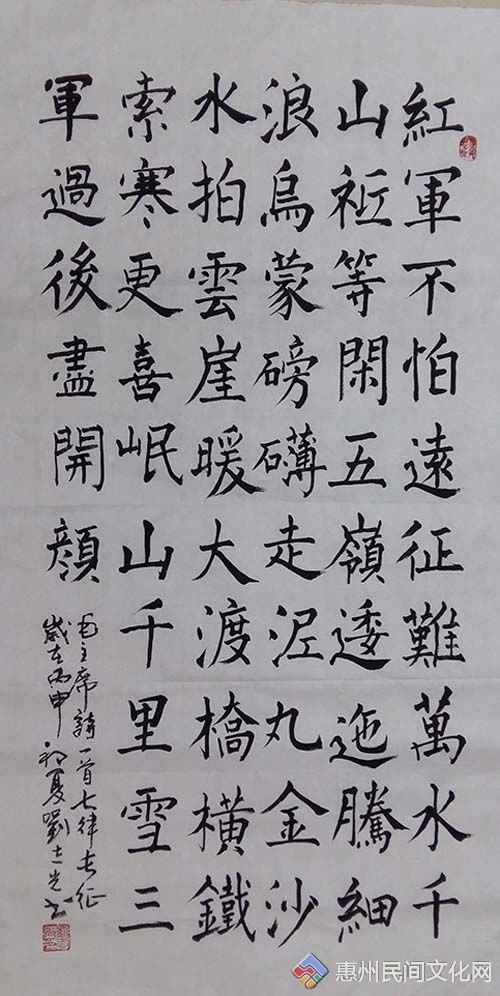 紅軍不怕遠征難萬水千
山祗等閑五嶺逶迤騰細
浪烏蒙磅礴走泥丸金沙
水拍雲崖暖大渡橋橫鐵
索寒更喜岷山千里雪三
軍過後盡開顏
毛主席詩一首七律長征
歲在丙申初夏劉士光書
惠州民间文化网